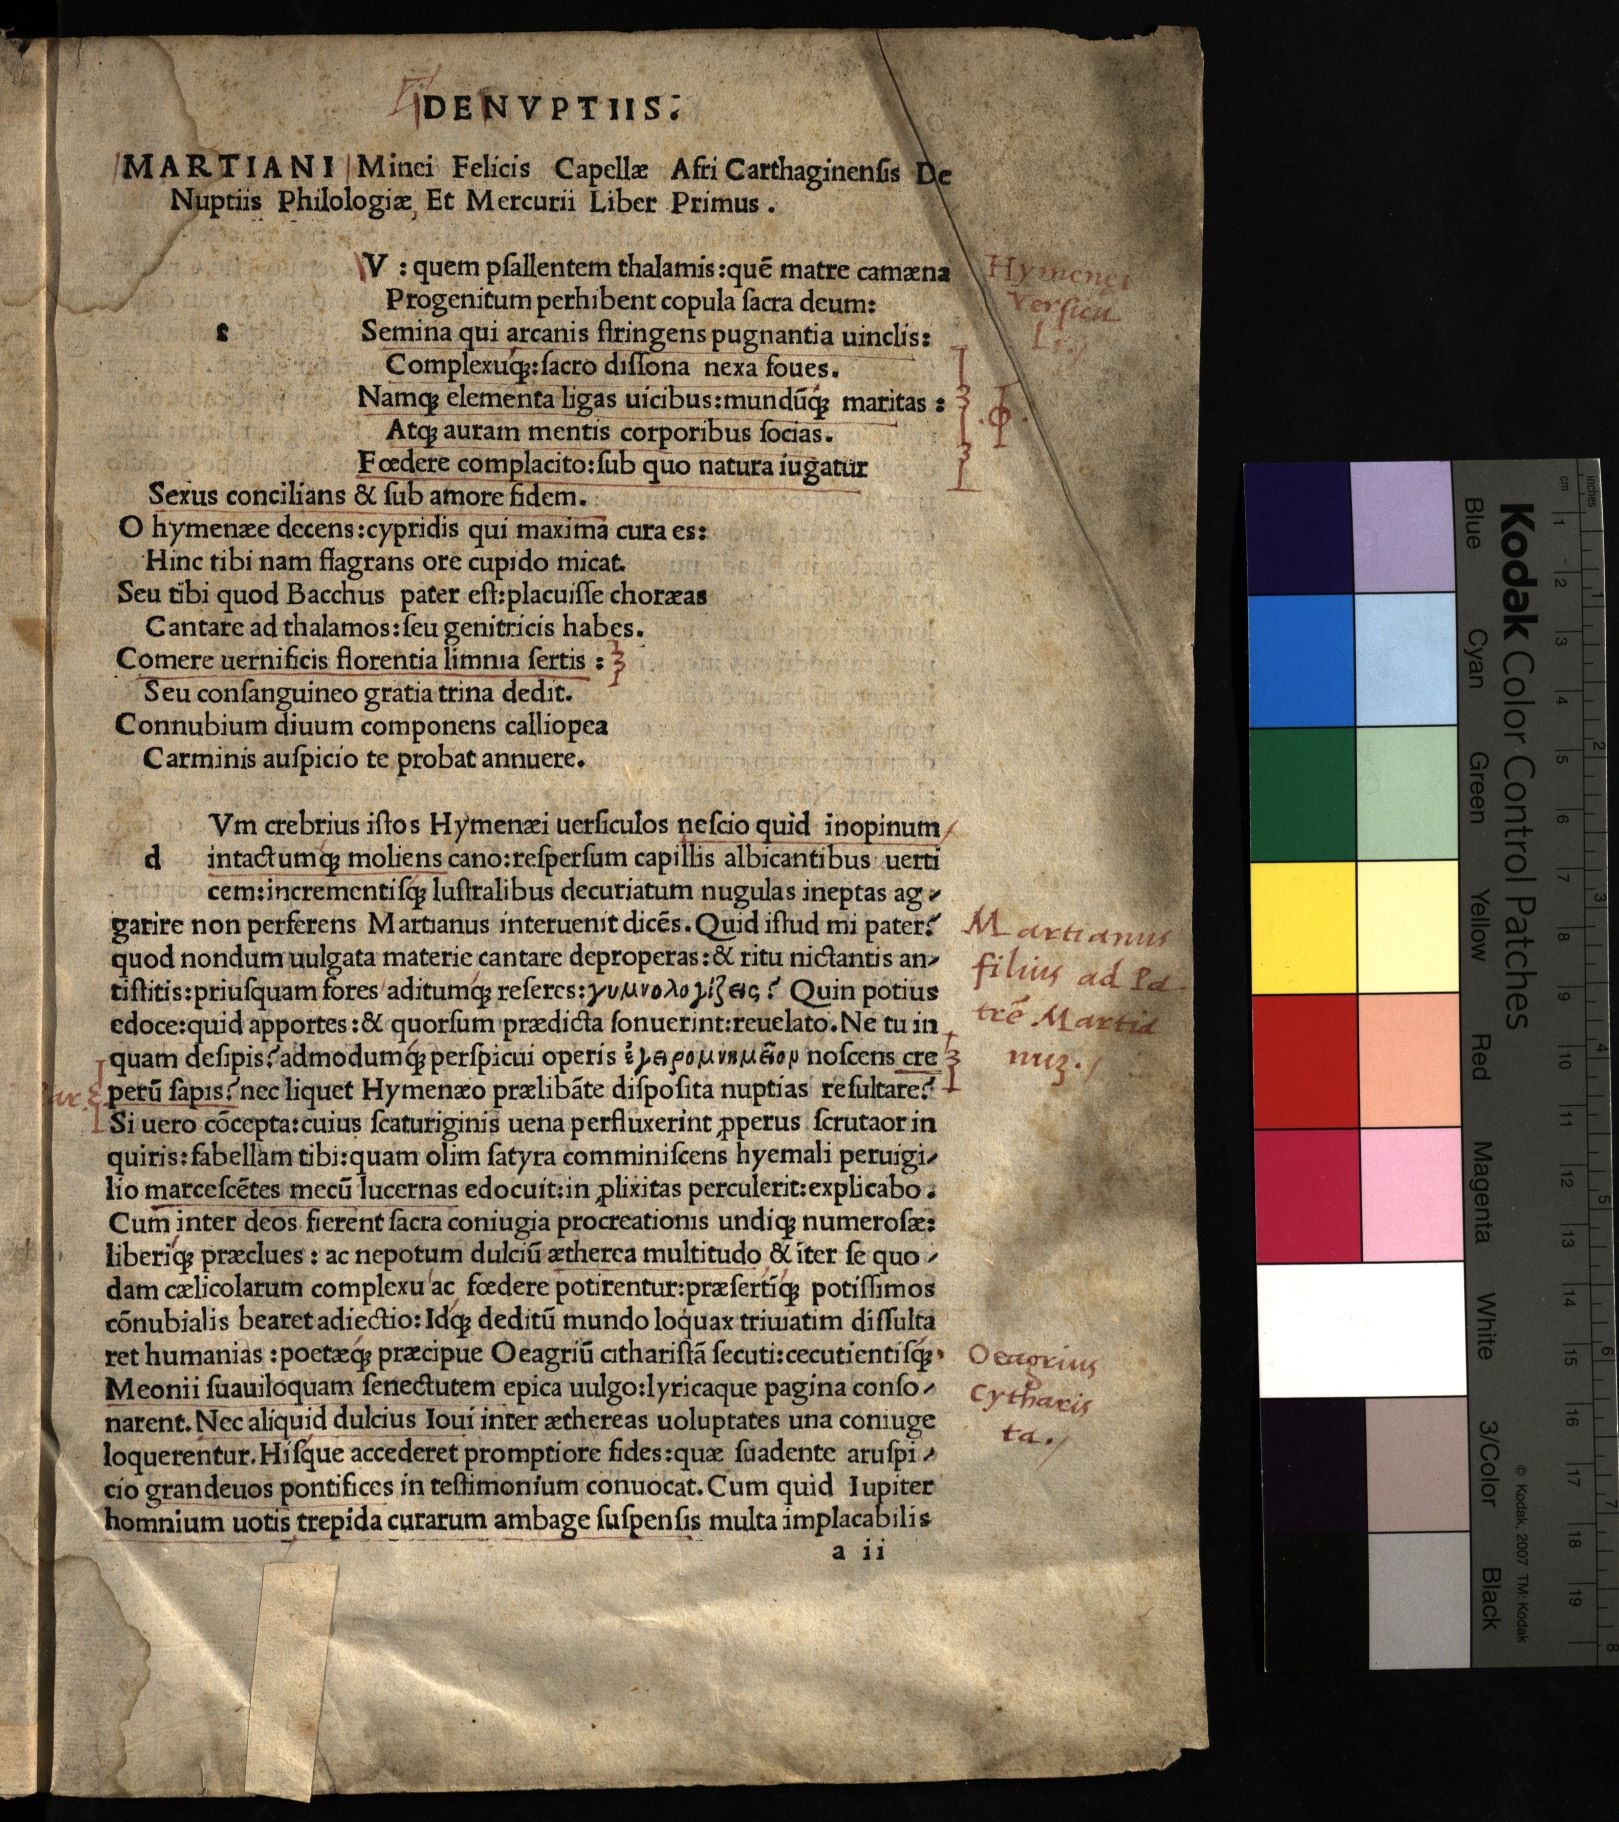 DE NVPTIIS.
MARTIANI Minei Felicis Capellæ Afri Carthaginenſis De
Nuptiis Philologiæ, Et Mercurii Liber Primus.
V : quem pſallentem thalamis:quē matre camæna
Progenitum perhibent copula ſacra deum:
Semina qui arcanis ſtringens pugnantia uinclis:
Complexuq;:ſacro diſſona nexa foues.
Namq; elementa ligas uicibus:mundūq; maritas :
Atq; auram mentis corporibus ſocias.
Fœdere complacito:ſub quo natura iugatur
Sexus concilians & ſub amore fidem.
O hymenæe decens:cypridis qui maxima cura es:
Hinc tibi nam flagrans ore cupido micat.
Seu tibi quod Bacchus pater eſt:placuiſſe choræas
Cantare ad thalamos:ſeu genitricis habes.
Comere uernificis florentia limnia ſertis :
Seu conſanguineo gratia trina dedit.
Connubium diuum componens calliopea
Carminis auſpicio te probat annuere.
Hymenęi
Verſicu
li./
Vm crebrius iſtos Hymenæi uerſiculos neſcio quid inopinum
d intactumq; moliens cano:reſperſum capillis albicantibus uerti
cem:incrementiſq; luſtralibus decuriatum nugulas ineptas ag-
garire non perferens Martianus interuenit dicēs. Quid iſtud mi pater?
quod nondum uulgata materie cantare deproperas:& ritu nictantis an-
tiſtitis:priuſquam fores aditumq; reſeres:γυμνολογίζεις? Quin potius
edoce:quid apportes:& quorſum prædicta ſonuerint:reuelato. Ne tu in
quam deſipis?admodumq; perſpicui operis ἐγερσμνημεῖον noſcens cre
perū ſapis?nec liquet Hymenæo prælibāte diſpoſita nuptias reſultare?
Si uero cōcepta:cuius ſcaturiginis uena perfluxerint ꝓperus ſcrutaor in
quiris:fabellam tibi:quam olim ſatyra comminiſcens hyemali peruigi-
lio marceſcētes mecū lucernas edocuit:in ꝓlixitas perculerit:explicabo.
Cum inter deos fierent ſacra coniugia procreationis undiq; numeroſæ:
liberiq; præclues : ac nepotum dulciū ætherea multitudo & īter ſe quo-
dam cælicolarum complexu ac fœdere potirentur:præſertīq; potiſſimos
cōnubialis bearet adiectio:Idq; deditū mundo loquax triuiatim diſſulta
ret humanias :poetæq; præcipue Oeagriū cithariſtā ſecuti:cecutientiſq;
Meonii ſuauiloquam ſenectutem epica uulgo:lyricaque pagina conſo-
narent. Nec aliquid dulcius Ioui inter æthereas uoluptates una coniuge
loquerentur. Hiſque accederet promptiore fides:quæ ſuadente aruſpi-
cio grandeuos pontifices in teſtimonium conuocat. Cum quid Iupiter
homnium uotis trepida curarum ambage ſuſpenſis multa implacabilis
a ii
Martianus
filius ad Pa
trē Martia
nuʒ./
Oeagrius
Cytharis
ta./
Kodak Color Control Patches
Blue Cyan Green Yellow Red Magenta White 3/Color Black
© Kodak, 2007 TM: Kodak
cm 1 2 3 4 5 6 7 8 9 10 11 12 13 14 15 16 17 18 19
inches 1 2 3 4 5 6 7 8